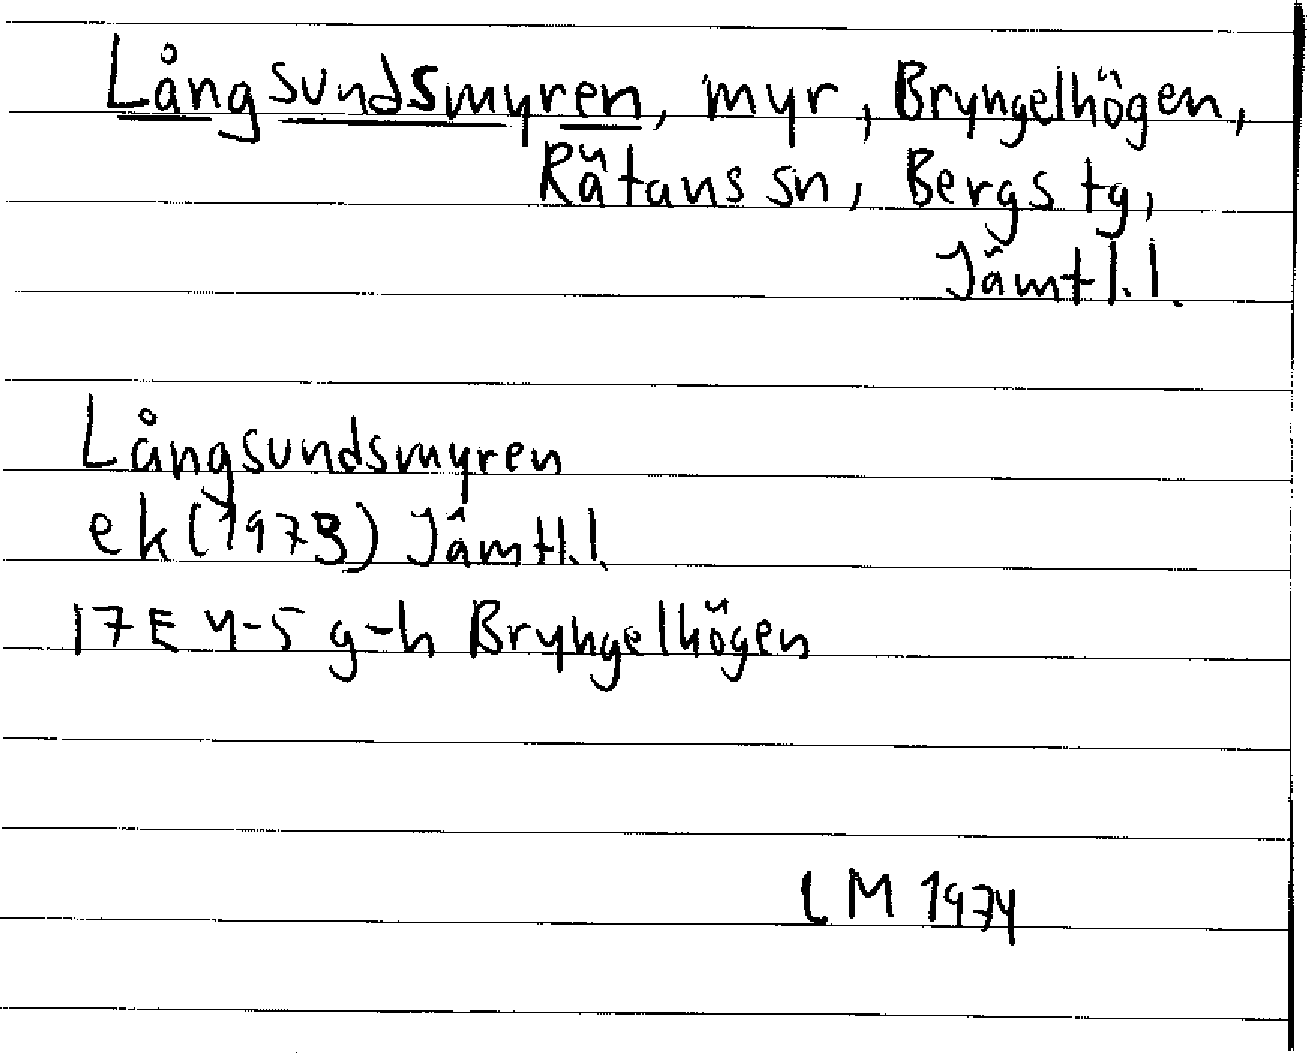 Långsundsmyren, myr, Bryngelhögen,
Rätans sn, Bergs tg,
Jämtl.l.
Långsundsmyren
ek (1973) Jämtl.l.
17E 4-5 g-h Bryngelhögen
LM 1974